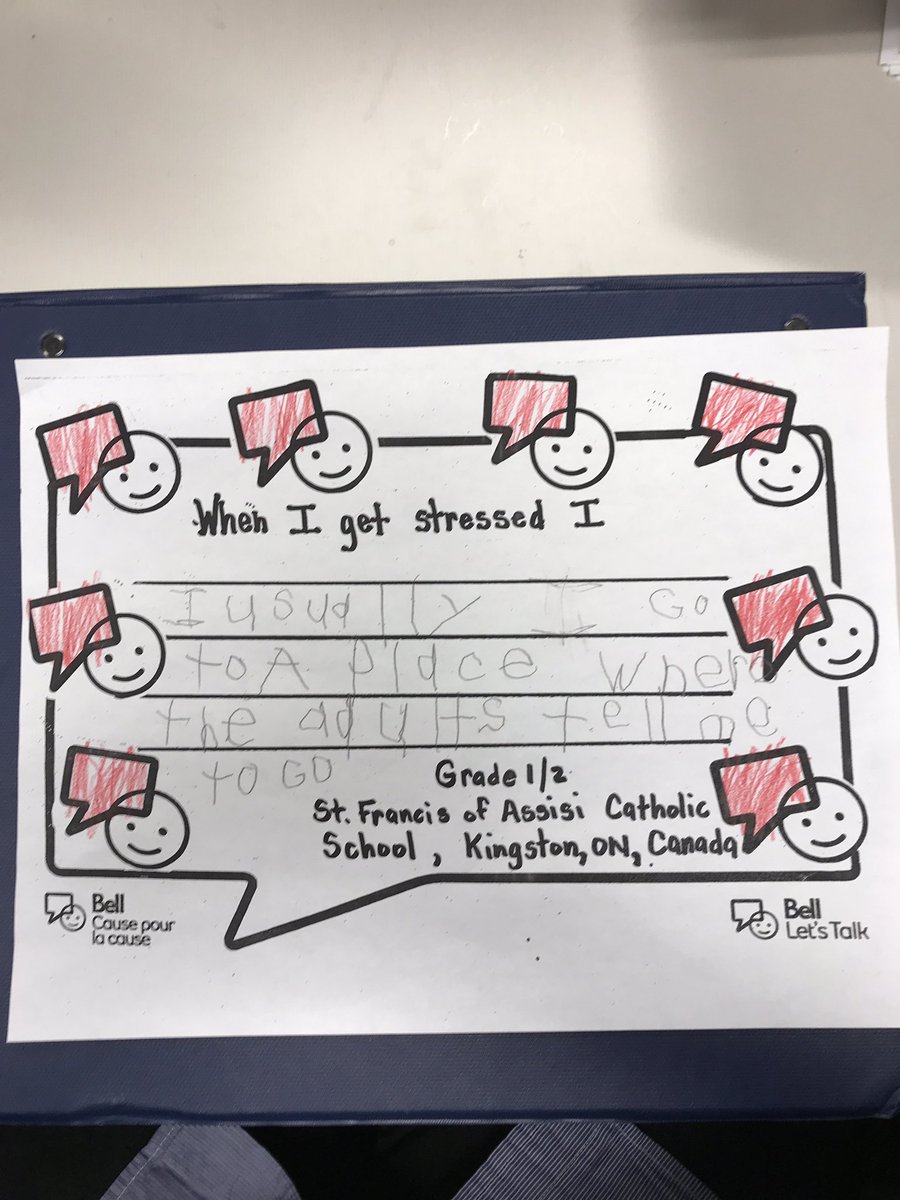 When I get stressed I
I usually I Go
to A place where
the adults tell me
to GO
Grade 1/2
St. Francis of Assisi Catholic
School, Kingston, ON, Canada
Bell
Cause pour
la cause
Bell
Let's Talk